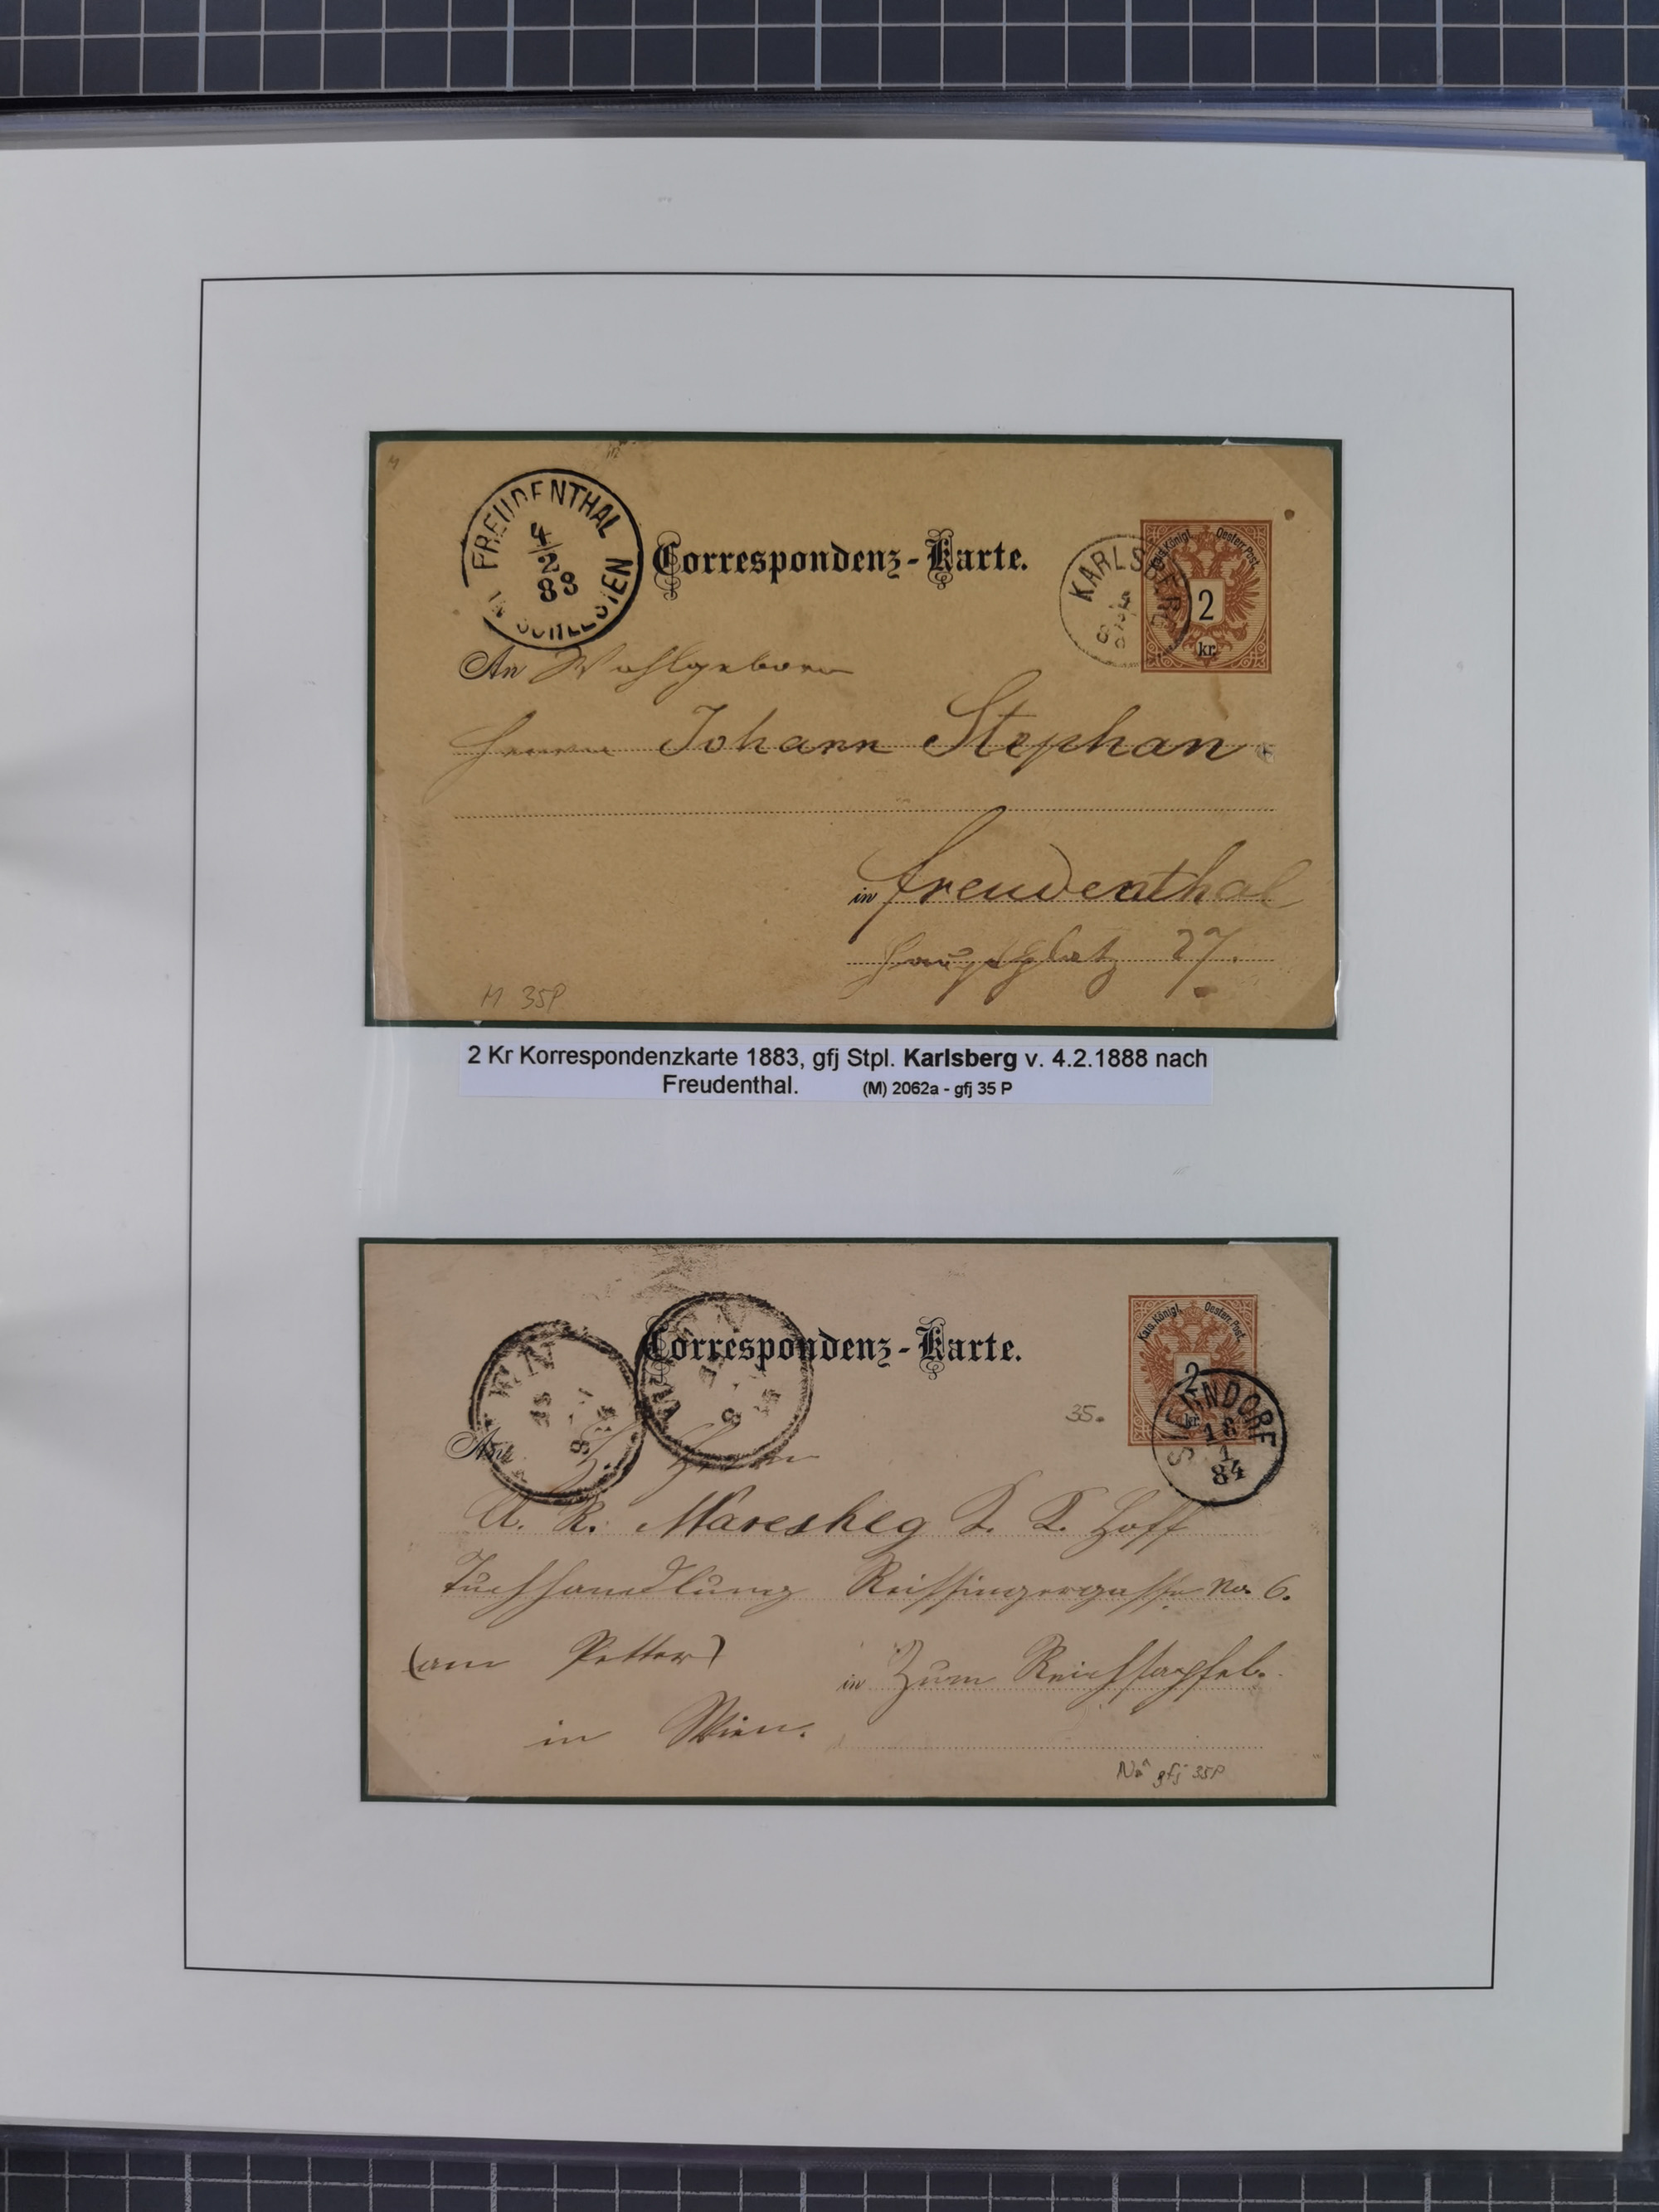 FREUDENTHAL
4/2
88
IN SCHLESIEN
Correspondenz-Karte.
KARLSBERG
Kais. Königl. Oesterr. Post.
2
kr.
An Wohlgeboren
Herrn Johann Stephan
in Freudenthal
Hauptplatz 27.
M 35P
2 Kr Korrespondenzkarte 1883, gfj Stpl. Karlsberg v. 4.2.1888 nach
Freudenthal. (M) 2062a - gfj 35 P
WIEN
Correspondenz-Karte.
Kais. Königl. Oesterr. Post.
2
kr.
35.
DORF
16
1
84
An
Herrn
A. K. Maresheg
Tuchhandlung No. 6.
(am Petter)
in Zum Reichsapfel.
in Wien.
gfj 35P